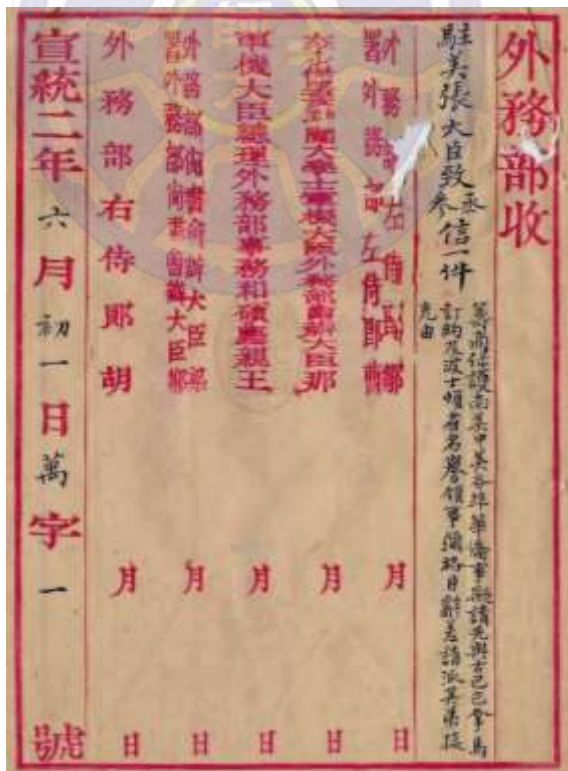 外務部收
駐美張大臣致丞參信一件
籌商保護南美中美各埠華僑事擬請先與古巴巴拿馬
訂約及波士頓省名譽領事彌路自辭差請派其弟接
充由
外務部左侍郎鄒
署外務部左侍郎曹
大學士軍機大臣外務部會辦大臣那
軍機大臣總理外務部事務和碩慶親王
外務部尚書會辦大臣梁
署外務部尚書會辦大臣鄒
外務部右侍郎胡
月 日
月 日
月 日
月 日
月 日
宣統二年六月初一日萬字一號